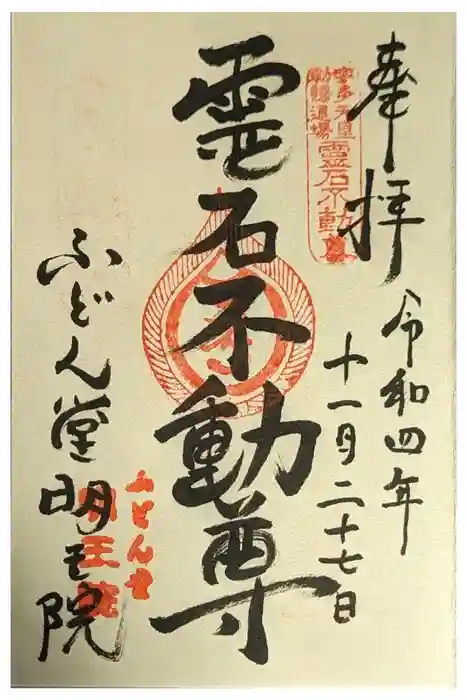 奉拝
令和四年
十一月二十七日
宇多天皇
勅願道場
霊石不動尊
霊石不動尊
ふどん堂明王院
ふどん堂
明王院